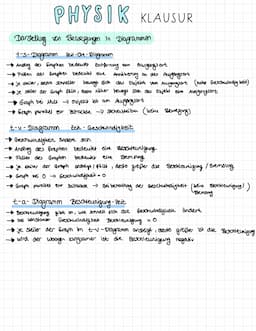 PHYSIK KLAUSUR
Darstellung von Bewegungen in Diagrammen
t-s-Diagramm Zeit-Ort-Diagramm
→ Anstieg des Graphen bedeutet Entfernung vom Ausgangsort
→ Fallen des Graphen bedeutet eine Annäherung an den Ausgangsort
→ je steiler, desto schneller bewegt sich das Objekt von Ausgangsort (hohe Geschwindigkeit)
→ je steiler der Graph fällt, desto näher bewegt sich das Objekt dem Ausgangsort
→ Graph bei Null → Objekt ist am Ausgangsort
→ Graph parallel zur → (keine Bewegung)
t-v-Diagramm Zeit-Geschwindigkeit
→ Geschwindigkeit ändert sich
→ Anstieg des Graphen bedeutet eine Beschleunigung
→ Fallen des Graphen bedeutet eine Bremsung
→ je steiler der Graph ansteigt/fällt, desto größer die Beschleunigung/Bremsung
→ Graph bei 0 → Geschwindigkeit = 0
→ Graph parallel zur → der Geschwindigkeit (keine Beschleunigung/Bremsung)
t-a-Diagramm Beschleunigung-Zeit
→ Beschleunigung gibt an, wie schnell sich die Geschwindigkeit ändert
→ bei konstanter Geschwindigkeit → Beschleunigung = 0
→ je steiler der Graph im t-v-Diagramm ansteigt, desto größer ist die Beschleunigung
→ wird der langsamer ist die Beschleunigung negativ